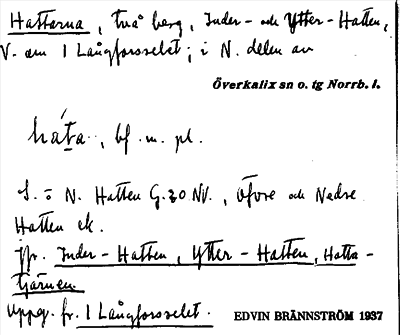 Hattarna, två berg, Inder- och Ytter-Hatten,
V. om 1 Långforsselet; i N. delen av
Överkalix sn o. tg Norrb. l.
háta, bf. m. pl.
S. = N. Hatten G.20 NV., Övre och Nedre
Hatten ek.
Jfr. Inder-Hatten, Ytter-Hatten, Hatta-
tjärnen.
Uppg. fr. 1 Långforsselet.
EDVIN BRÄNNSTRÖM 1937